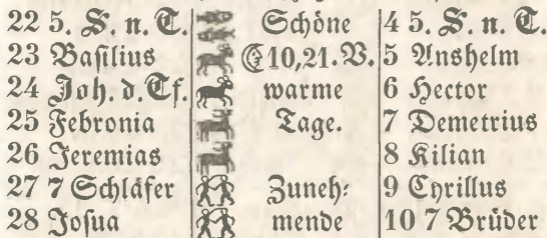 22 5. S. n. T. Schöne 4 5. S. n. T.
23 Basilius 10,21. V. 5 Anshelm
24 Joh. d. Tf. warme 6 Hector
25 Febronia Tage. 7 Demetrius
26 Jeremias 8 Kilian
27 7 Schläfer Zuneh: 9 Cyrillus
28 Josua mende 10 7 Brüder